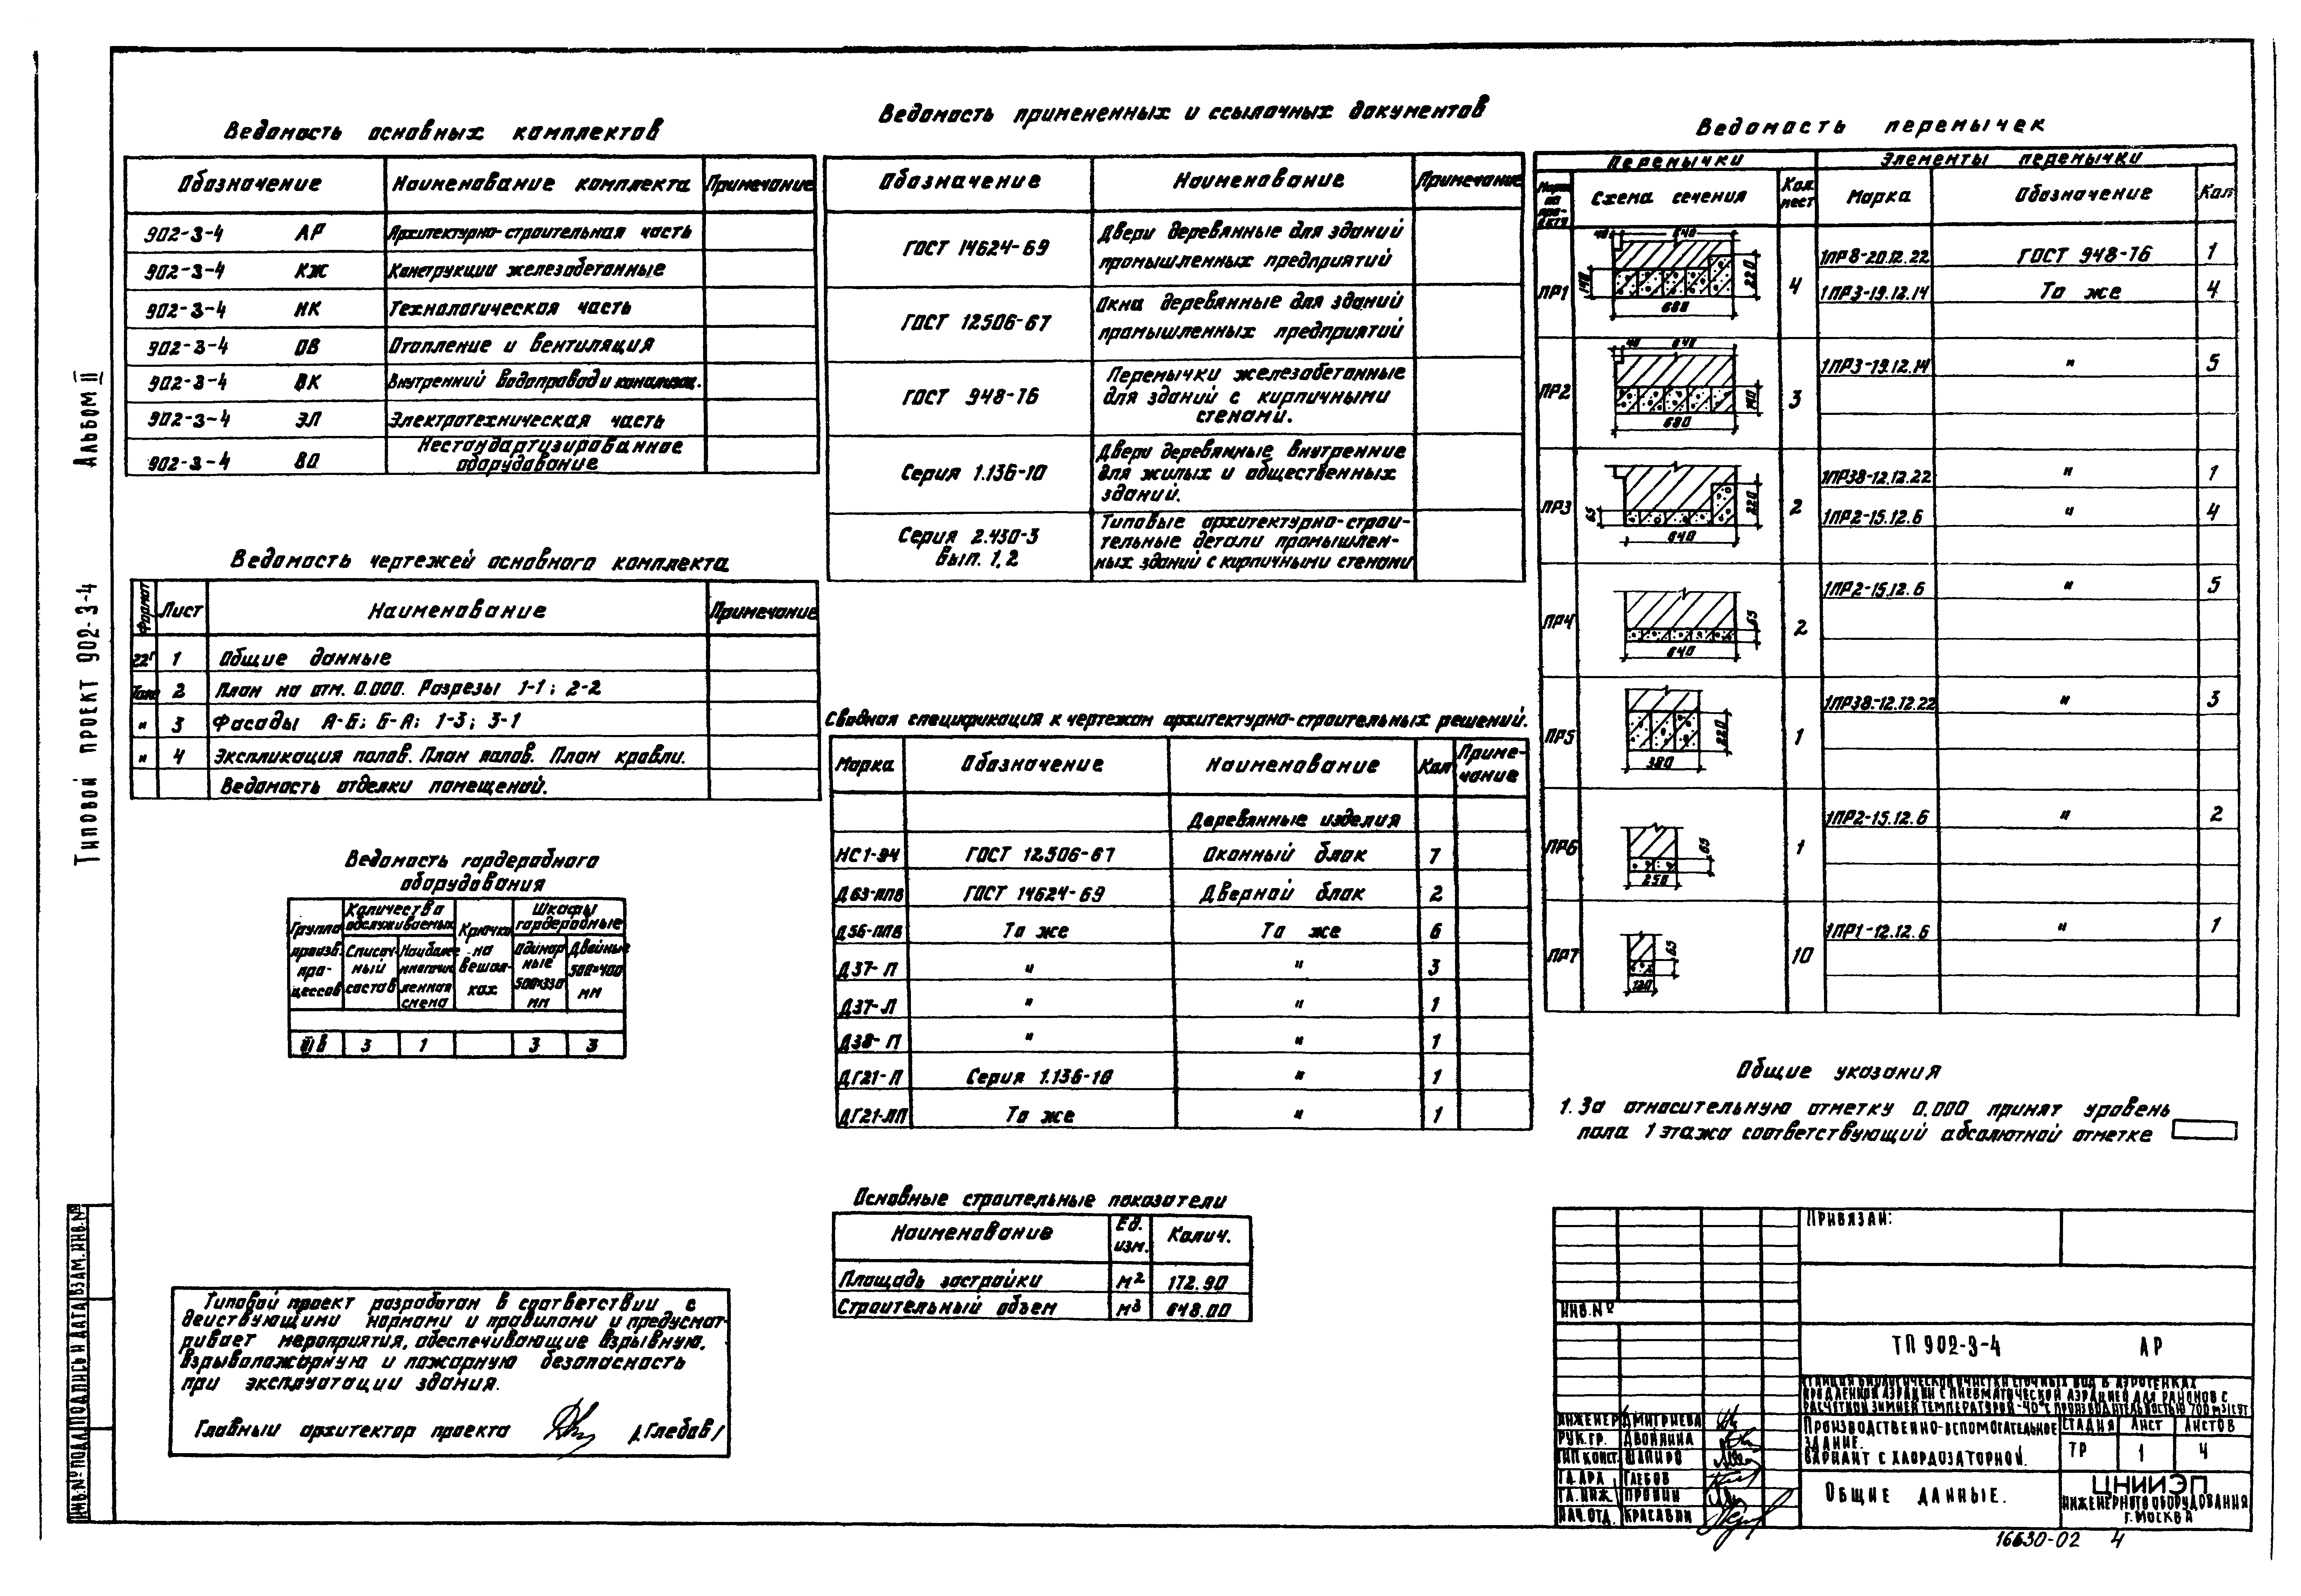 Альбом II
Типовой проект 902-3-4
Ведомость основных комплектов
Обозначение Наименование комплекта Примечание
902-3-4 АР Архитектурно-строительная часть
902-3-4 КЖ Конструкции железобетонные
902-3-4 НК Технологическая часть
902-3-4 ОВ Отопление и вентиляция
902-3-4 ВК Внутренний водопровод и канализац.
902-3-4 ЭЛ Электротехническая часть
902-3-4 ВО Нестандартизированное
оборудование
Ведомость чертежей основного комплекта
Формат Лист Наименование Примечание
22г 1 Общие данные
2 План на отм. 0.000. Разрезы 1-1; 2-2
" 3 Фасады А-Б; Б-А; 1-3; 3-1
" 4 Экспликация полов. План полов. План кровли.
Ведомость отделки помещений.
Ведомость гардеробного
оборудования
Группа произв. процессов
Количество обслуживаемых
Списочный состав
Наиболее многочисленная смена
Крючки на вешалках
Шкафы гардеробные
Одинарные 500×330 мм
Двойные 500×400 мм
3 1 3 3
Типовой проект разработан в соответствии с
действующими нормами и правилами и предусмат-
ривает мероприятия, обеспечивающие взрывную,
взрывопожарную и пожарную безопасность
при эксплуатации здания.
Главный архитектор проекта /Глебов/
Ведомость примененных и ссылочных документов
Обозначение Наименование Примечание
ГОСТ 14624-69 Двери деревянные для зданий
промышленных предприятий
ГОСТ 12506-67 Окна деревянные для зданий
промышленных предприятий
ГОСТ 948-76 Перемычки железобетонные
для зданий с кирпичными
стенами.
Серия 1.136-10 Двери деревянные внутренние
для жилых и общественных
зданий.
Серия 2.430-3
Вып. 1, 2
Типовые архитектурно-строи-
тельные детали промышлен-
ных зданий с кирпичными стенами
Сводная спецификация к чертежам архитектурно-строительных решений.
Марка Обозначение Наименование Кол Приме-
чание
Деревянные изделия
НС1-94 ГОСТ 12506-67 Оконный блок 7
Д63-ППВ ГОСТ 14624-69 Дверной блок 2
Д56-ППВ То же То же 6
Д37-П " " 3
Д37-Л " " 1
Д38-П " " 1
ДГ21-П Серия 1.136-10 " 1
ДГ21-ЛП То же " 1
Основные строительные показатели
Наименование Ед. изм. Колич.
Площадь застройки м2 172.90
Строительный объем м3 648.00
Ведомость перемычек
Перемычки Элементы перемычки
Марка по проекту Схема сечения Кол. мест Марка Обозначение Кол
ПР1 40 640 140 220 680 4 1ПР8-20.12.22 ГОСТ 948-76 1
1ПР3-19.12.14 То же 4
ПР2 40 640 140 680 3 1ПР3-19.12.14 " 5
ПР3 65 220 640 2 1ПР38-12.12.22 " 1
1ПР2-15.12.6 " 4
ПР4 65 640 2 1ПР2-15.12.6 " 5
ПР5 220 380 1 1ПР38-12.12.22 " 3
ПР6 65 250 1 1ПР2-15.12.6 " 2
ПР7 65 120 10 1ПР1-12.12.6 " 1
Общие указания
1. За относительную отметку 0.000 принят уровень
пола 1 этажа соответствующий абсолютной отметке
Привязан:
Инв.№
ТП 902-3-4 АР
Станция биологической очистки сточных вод в аэротенках
продленной аэрации с пневматической аэрацией для районов с
расчетной зимней температурой -40°С производительностью 700 м3/сут
Производственно-вспомогательное
здание.
Вариант с хлордозаторной.
Стадия Лист Листов
ТР 1 4
Общие данные.
ЦНИИЭП
инженерного оборудования
г. Москва
Инженер Дмитриева
Рук.гр. Двойнина
Гип конст. Шапиро
Гл. арх Глебов
Гл. инж. Пронин
Нач.отд. Красавин
Взам.инв.№
Подпись и дата
Инв.№ подл
16630-02 4